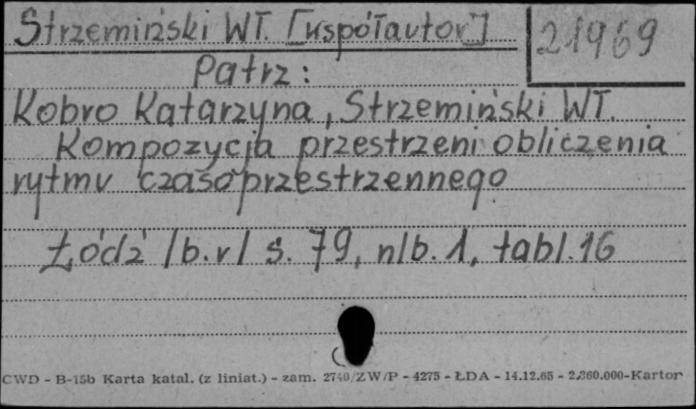 Strzemiński Wł. [współautor]
21969
Patrz:
Kobro Katarzyna, Strzemiński Wł.
Kompozycja przestrzeni obliczenia
rytmu czasoprzestrzennego
Łódź /b.r/ s. 79, nlb. 1, tabl. 16
CWD - B-15b Karta katal. (z liniat.) - zam. 2740/ZW/P - 4275 - ŁDA - 14.12.65 - 2.360.000-Kartor